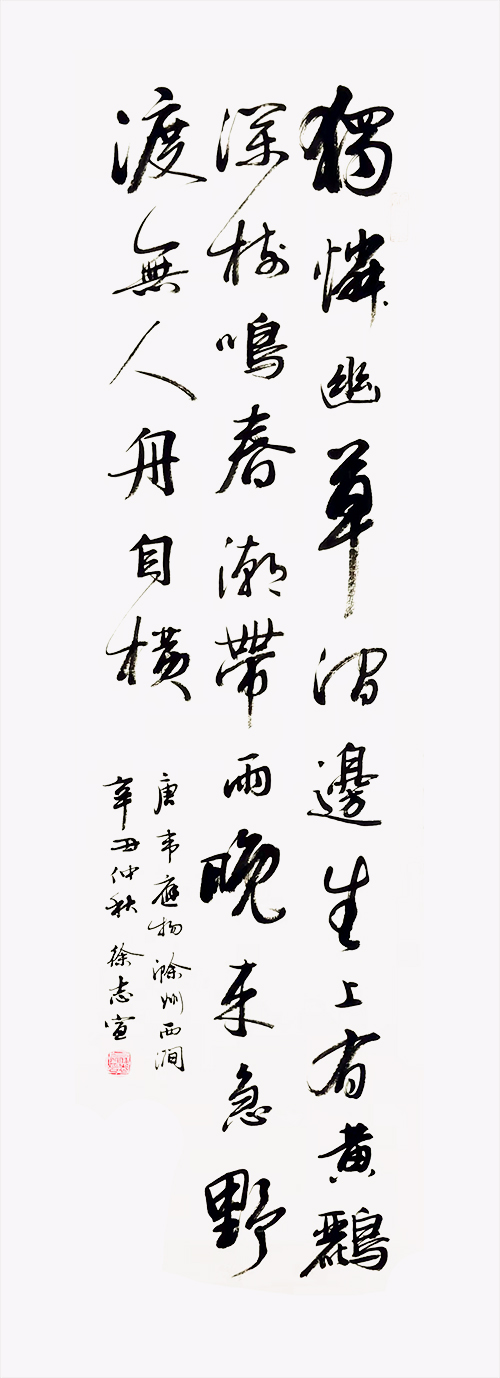 獨憐幽草澗邊生上有黃鸝
深樹鳴春潮帶雨晚來急野
渡無人舟自橫
唐韦應物滁州西澗
辛丑仲秋徐志宣